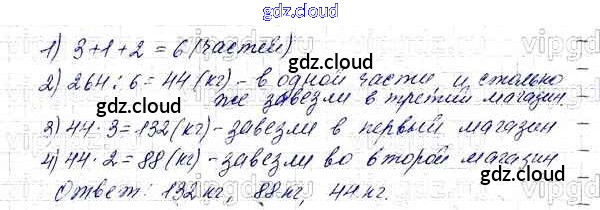 gdz.cloud
1) 3+1+2=6 (частей)
gdz.cloud
2) 264:6=44 (кг)-в одной части, и столько
же завезли в третий магазин
gdz.cloud
3) 44·3=132 (кг)-завезли в первый магазин
gdz.cloud
4) 44·2=88 (кг)-завезли во второй магазин
gdz.cloud
Ответ: 132 кг, 88 кг, 44 кг.